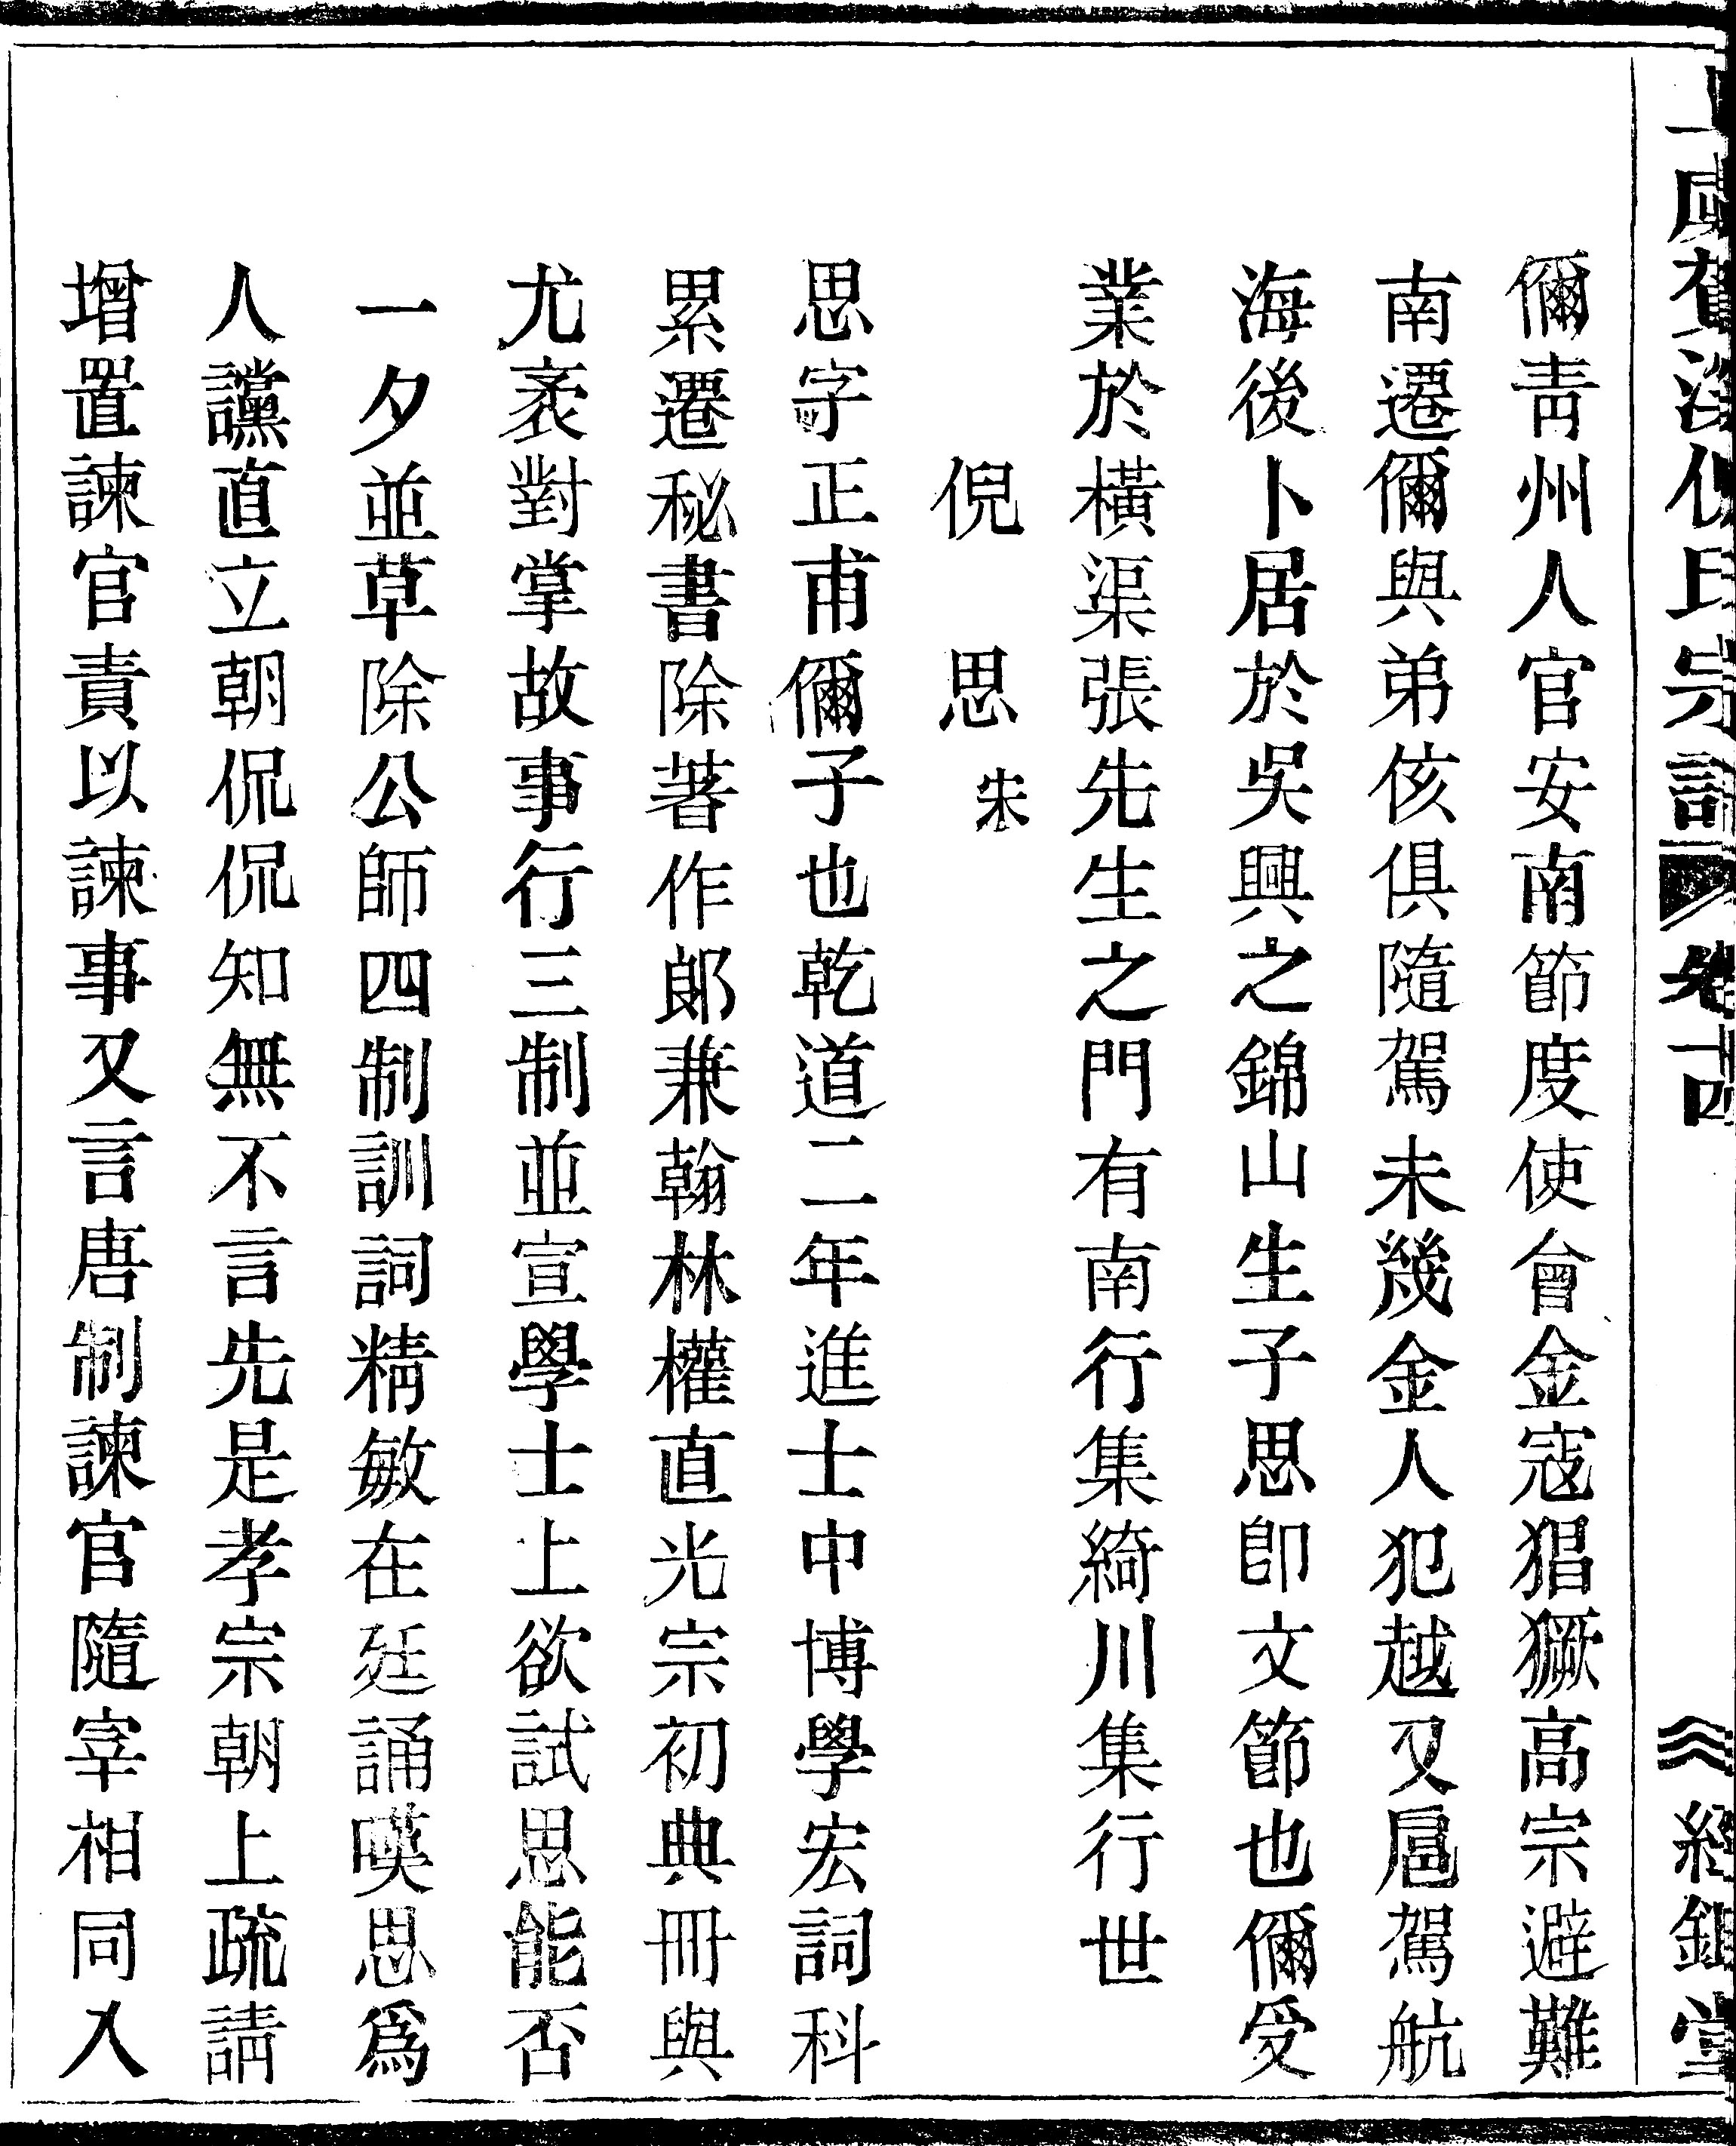 卷十四 經鉏堂
儞靑州人官安南節度使會金寇猖獗高宗避難
南遷儞與弟侅俱隨駕未幾金人犯越又扈駕航
海後卜居於吳興之錦山生子思卽文節也儞受
業於橫渠張先生之門有南行集綺川集行世
倪思 宋
思字正甫儞子也乾道二年進士中博學宏詞科
累遷秘書除著作郞兼翰林權直光宗初典冊與
尤袤對掌故事行三制並宣學士上欲試思能否
一夕並草除公師四制訓詞精敏在廷誦嘆思爲
人讜直立朝侃侃知無不言先是孝宗朝上疏請
增置諫官責以諫事又言唐制諫官隨宰相同入